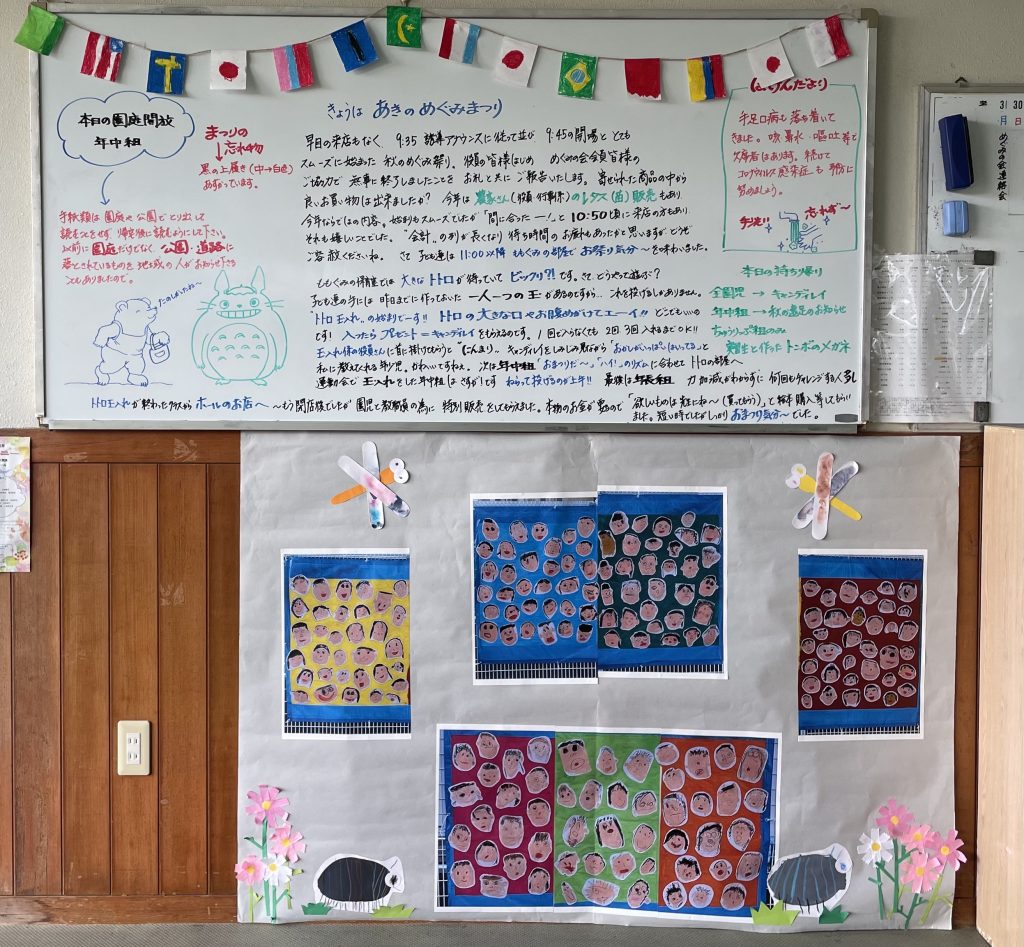 本日の園庭開放
年中組
まつりの
↓忘れ物
黒の上履き(中→白色)
あずかっています。
手紙類は園庭や公園でとり出して
読むことをせず 帰宅後に読むようにして下さい。
以前に園庭だけでなく 公園・道路に
落とされているものを地域の人がお知らせ下さる
こともありましたので。
たのしかったね〜
きょうは あきのめぐみまつり
早目の来店もなく 9:35 誘導アナウンスに従って並び 9:45の開場と とても
スムーズに始まった 秋のめぐみ祭り。役員の皆様はじめ めぐみの会会員皆様の
ご協力で 無事に終了しましたことを お礼と共に ご報告いたします。寄せられた商品の中から
良いお買い物は出来ましたか? 今年は 農家さん(役員)のレタス(苗)販売もあり
今年ならではの内容。始まりもスムーズでしたが「間に合ったー!」と 10:50頃に来店の方もあり
それも嬉しいことでした。"会計"の列が長くなり 待ち時間のお疲れもあったかと思いますがどうぞ
ご容赦くださいね。 さて 子ども達は 11:00以降 ももぐみの部屋で お祭り気分〜を味わいました。
ももぐみの保育室では 大きな トトロが待っていて ビックリ?!です。さて どうやって遊ぶ?
子ども達の手には 昨日までに作っておいた 一人一つの玉があるのですから… これを投げるしかありません。
"トトロ玉入れ"の始まりでーす!! トトロの大きな口やお腹めがけてエーイ!! どこでもいいの
です! 入ったら プレゼント = キャンディレイをもらえるのです。1回で入らなくても 2回 3回 入れるまでOK!!
玉入れ係の役員さんに首に掛けてもらうと "にんまり"。キャンディレイをしみじみ見ながら"おかしがいっぱい はいってる"と
私に教えてくれる年少児。かわいいですねぇ。次は年中組「おまつりだ〜」「ハイ!」のリズムに合わせてトトロの部屋へ
運動会で玉入れをした年中組は さすが!です ねらって投げるのが上手!! 最後は年長組 力加減がわからずに 何回もチャレンジする人多し
トトロ玉入れが終わったクラスから ホールのお店へ〜もう閉店後でしたが 園児と教職員の為に 特別販売をしてもらいました。本物のお金が要るので「欲しいものは先生にね〜(買ってもらう)」と 購入等してもらい
ました。短い時でしたがしっかり おまつり気分〜でした。
ほけんだより
手足口病も落ち着いて
きました。咳・鼻水・嘔吐等で
欠席者はあります。続けて
コロナウイルス感染症も 予防に
努めましょう。
手洗い
忘れず〜
本日の持ち帰り
全園児 → キャンディレイ
年中組 → 秋の遠足のお知らせ
ちゅうりっぷ組のみ
→ 親生と作ったトンボのメガネ
31 30
月 日
めぐみの会連絡会